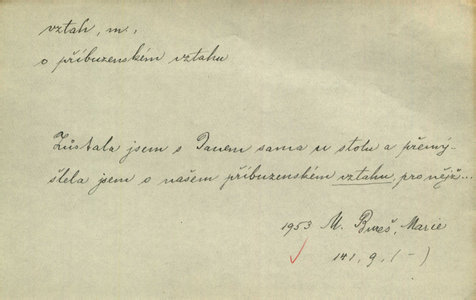 vztah, m.,
o příbuzenském vztahu
Zůstala jsem s Danem sama u stolu a přemý-
šlela jsem o našem příbuzenském vztahu, pro nějž...
1953 M. Bureš, Marie
141, 9, (-)